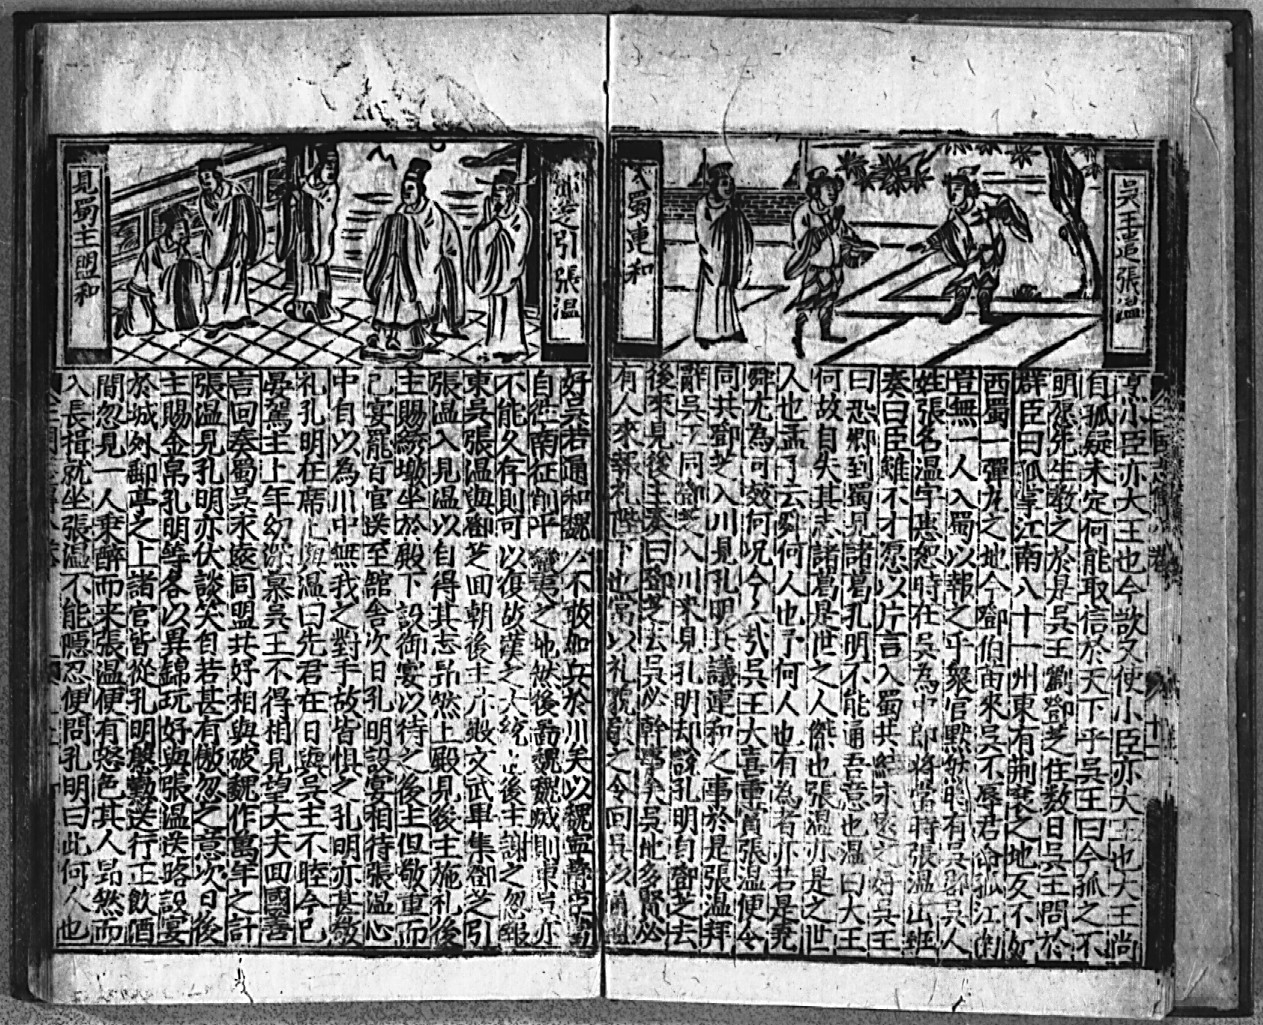 吳王遣張溫
蜀連和
凛小臣亦大王也今欲又使小臣亦大王也大王尚
自孤疑未定何能取信於天下乎吳王曰今孤之不
明愿先生教之於是吳王劉鄧芝住数日吳王問於
群臣曰孤掌江南八十一州東有荆襄之地反不如
西蜀一彈丸之地今鄧伯苗來吳不辱君命孤江南
豈無一人入蜀以報之乎衆官默然時有吳郡吳人
姓張名溫字惠恕時在吳為中郎將當時張溫出班
奏曰臣雖不才愿以片言入蜀共結永遠之好吳王
曰恐卿到蜀見諸葛孔明不能通吾意也溫曰大王
何故自失其志諸葛是世之人傑也張溫亦是之世
人也孟子云舜何人也予何人也有為者亦若是堯
舜尤為可效何况今之哉吳王大喜重賞張溫便令
同共鄧芝入川見孔明共議連和之事於是張溫拜
辭吳王同鄧芝入川來見孔明却說孔明自鄧芝去
後來見後主奏曰鄧芝去吳必幹事矣吳地多賢必
有人來報礼陛下也當以礼貌敬之令回吳以通
鄧芝引張溫
見蜀主盟和
好吳若通和魏必不敢加兵於川矣以魏盟寧
自往南征削平蠻夷之地然後啚魏魏滅則東吳亦
不能久存則可以復故漢之大統也後主謝之忽報
東吳張溫與鄧芝回朝後主升殿文武畢集鄧芝引
張溫入見溫以自得其志昂然上殿見後主施礼後
主賜綉墩坐於殿下設御宴以待之後主但敬重而
已宴罷百官送至舘舍次日孔明設宴相待張溫心
中自以為川中無我之對手故皆惧之孔明亦甚敬
礼孔明在席上與溫曰先君在日與吳主不睦今已
晏駕主上年幼深慕吳王不得相見望大夫回國善
言回奏蜀吳永遠同盟共好相與破魏作萬年之計
張溫見孔明亦伏談笑自若甚有傲忽之意次日後
主賜金帛孔明等各以異錦玩好與張溫送路設宴
於城外郵亭之上諸官皆從孔明慇懃送行正飲酒
間忽見一人乗醉而来張溫便有怒色其人昂然而
入長揖就坐張溫不能隱忍便問孔明曰此何人也